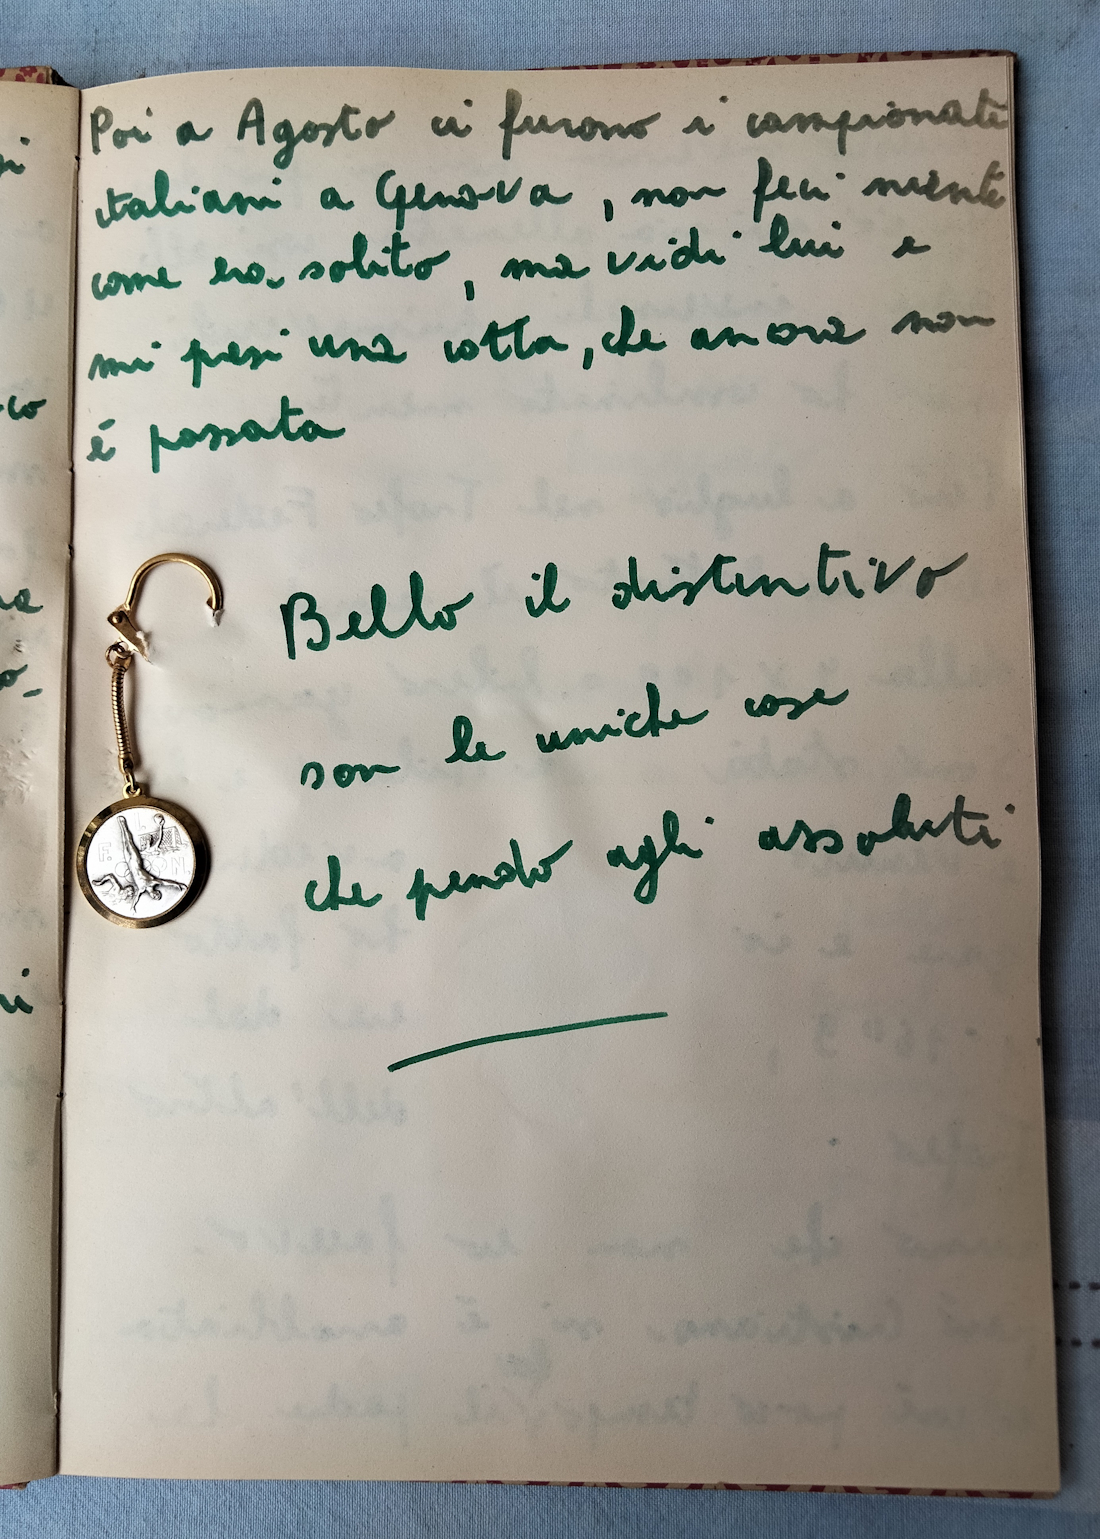 Poi a Agosto ci furono i campionati
italiani a Genova, non feci niente
come ero solito, ma vidi lui e
mi presi una cotta, che ancora non
é passata
Bello il distintivo
son le uniche cose
che prendo agli assoluti